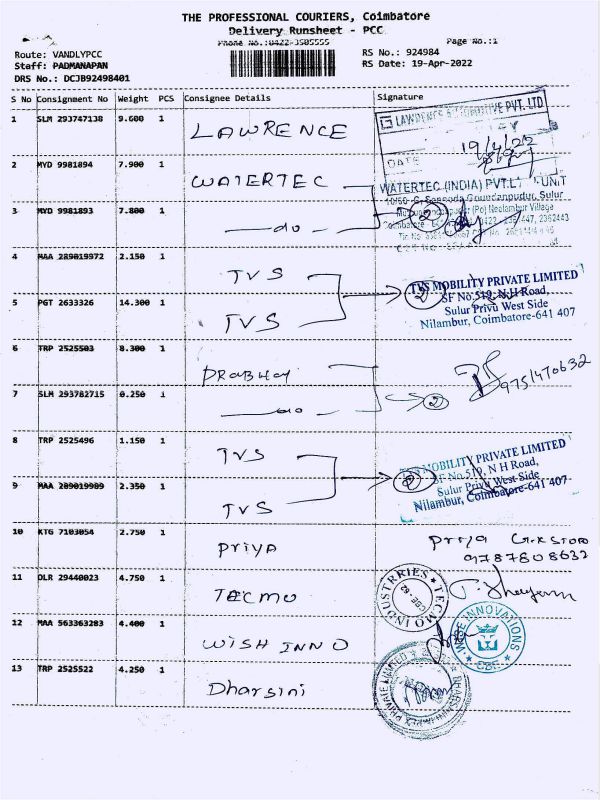 THE PROFESSIONAL COURIERS, Coimbatore
Delivery Runsheet - PCC
Phone No.:0422-3505555 Page No.:1
Route: VANDLYPCC RS No.: 924984
Staff: PADMANAPAN RS Date: 19-Apr-2022
DRS No.: DCJB92498401
S No Consignment No Weight PCS Consignee Details Signature
1 SLM 293747138 9.600 1 LAWRENCE
PVT. LTD
DATE 19/4/22
2 MYD 9981894 7.900 1 WATERTEC
WATERTEC (INDIA) PVT.LT UNIT
3 MYD 9981893 7.800 1 do 2
4 MAA 289019972 2.150 1 TVS 2
TVS MOBILITY PRIVATE LIMITED
SF No.519, N.H Road,
5 PGT 2633326 14.300 1 TVS
Sulur Privu West Side
Nilambur, Coimbatore-641 407
6 TRP 2525503 8.300 1 PRABHA
7 SLM 293782715 0.250 1 do 2
8 TRP 2525496 1.150 1 TVS
TVS MOBILITY PRIVATE LIMITED
SF No.519, N H Road,
9 MAA 289019989 2.350 1 TVS
Sulur Privu West Side
Nilambur, Coimbatore-641 407
10 KTG 7103054 2.750 1 Priya
Priya
9787808632
11 DLR 29440023 4.750 1 TECMO
TECMO INDUSTRRIES
12 MAA 563363283 4.400 1 WISH INNO
INNOVATIONS
CBE
13 TRP 2525522 4.250 1 Dharsini
PRIVATE LIMITED